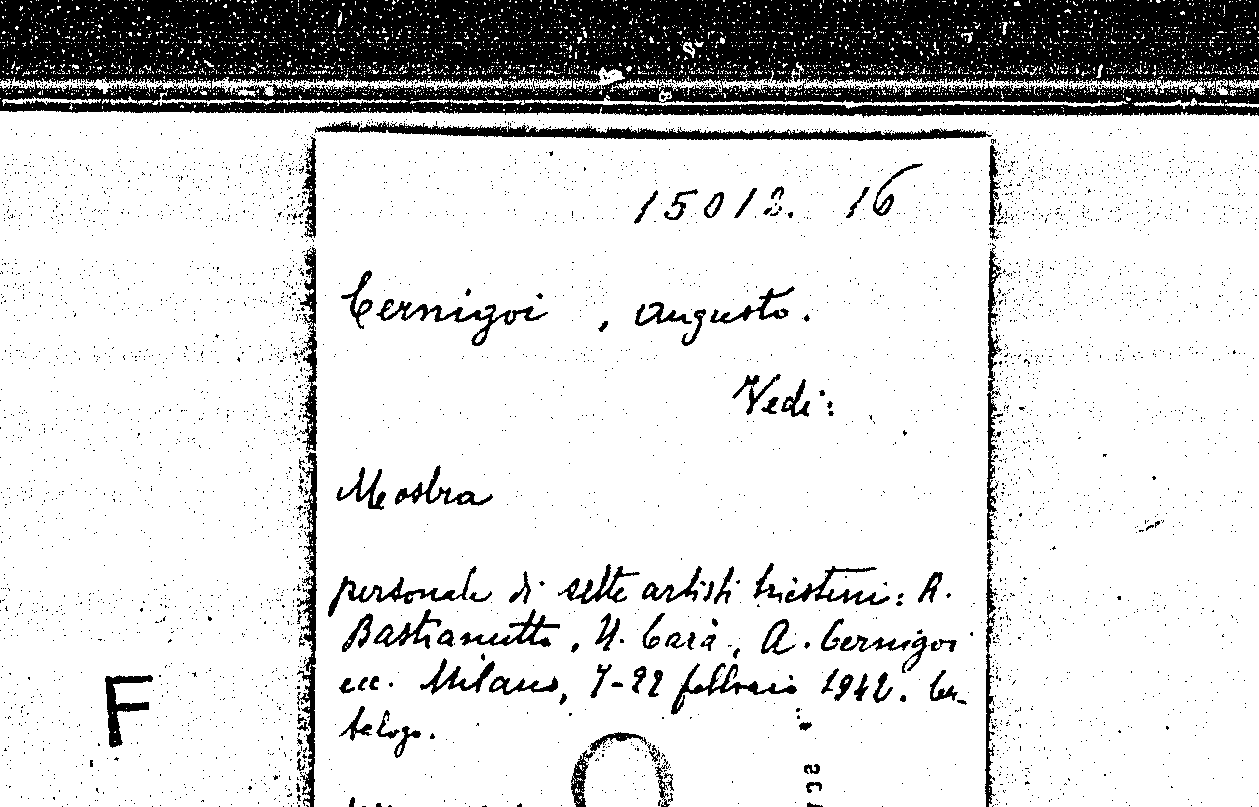 15012. 16
Cernigoi , Augusto.
Vedi:
Mostra
personale di sette artisti triestini: R.
Bastianutto, U. Carà, A. Cernigoi
ecc. Milano, 7-22 febbraio 1942. Ca-
talogo.
F